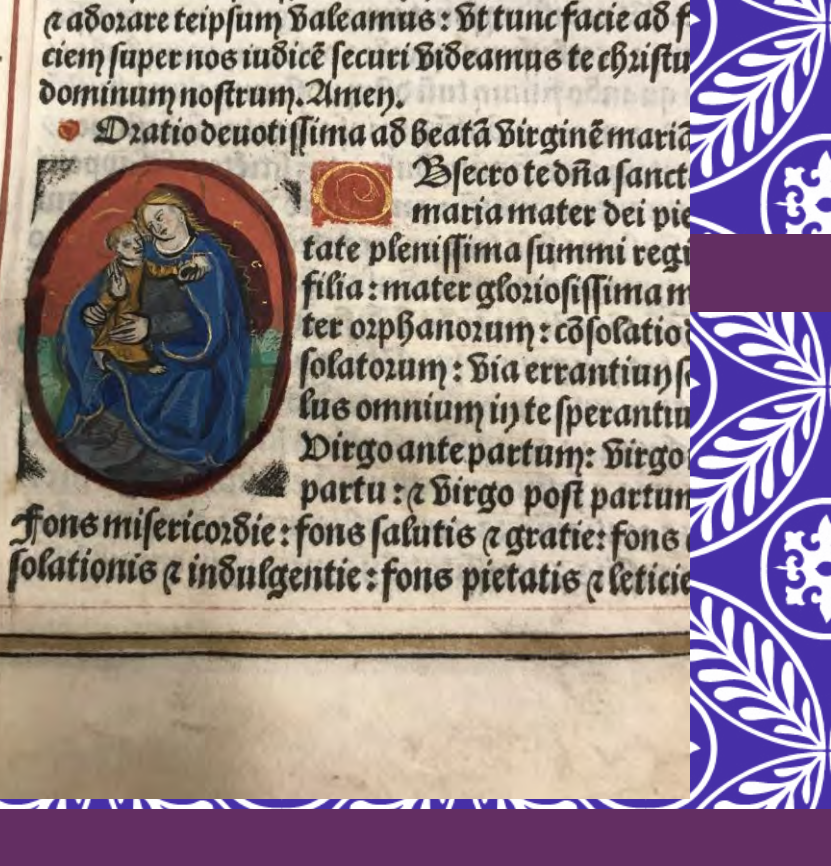 ⁊ adorare teipsum valeamus: vt tunc facie ad f
ciem super nos iudicē securi videamus te christu
dominum nostrum. Amen.
Oratio deuotissima ad beatā virginē mariā
OBsecro te dn̄a sanct
maria mater dei pie
tate plenissima summi regi
filia: mater gloriosissima m
ter orphanorum: cōsolatio d
solatorum: via errantium s
lus omnium in te sperantiu
Virgo ante partum: virgo
partu: ⁊ virgo post partum
Fons misericordie: fons salutis ⁊ gratie: fons
solationis ⁊ indulgentie: fons pietatis ⁊ leticie